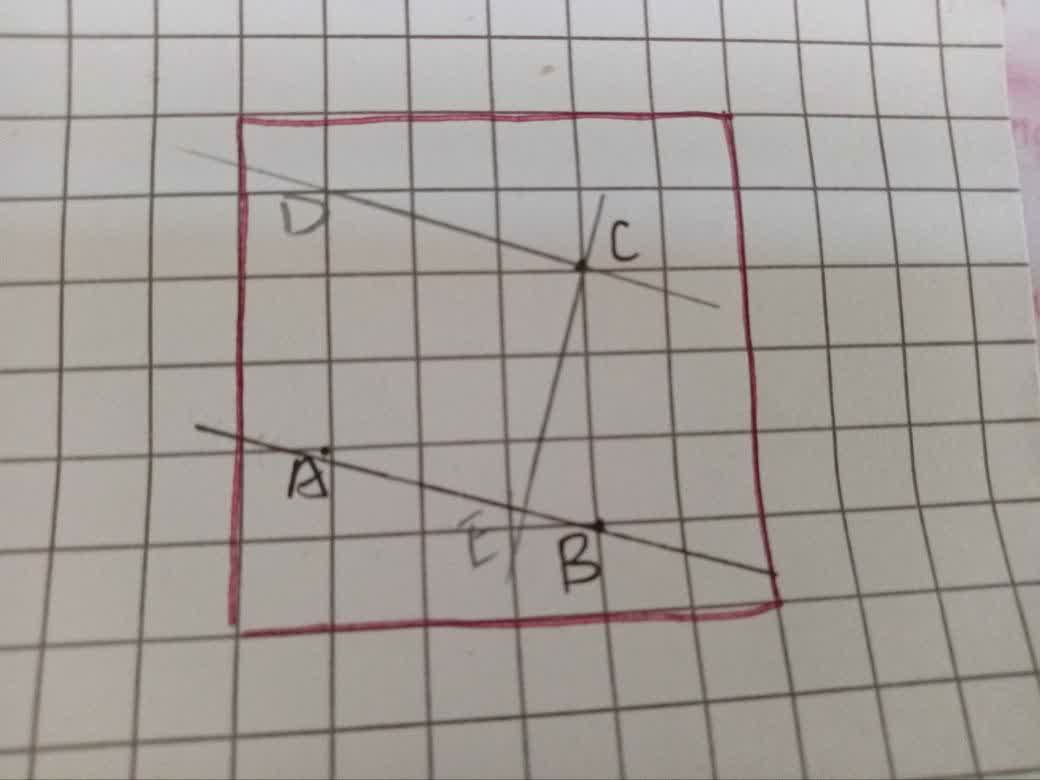 D
C
A
E
B